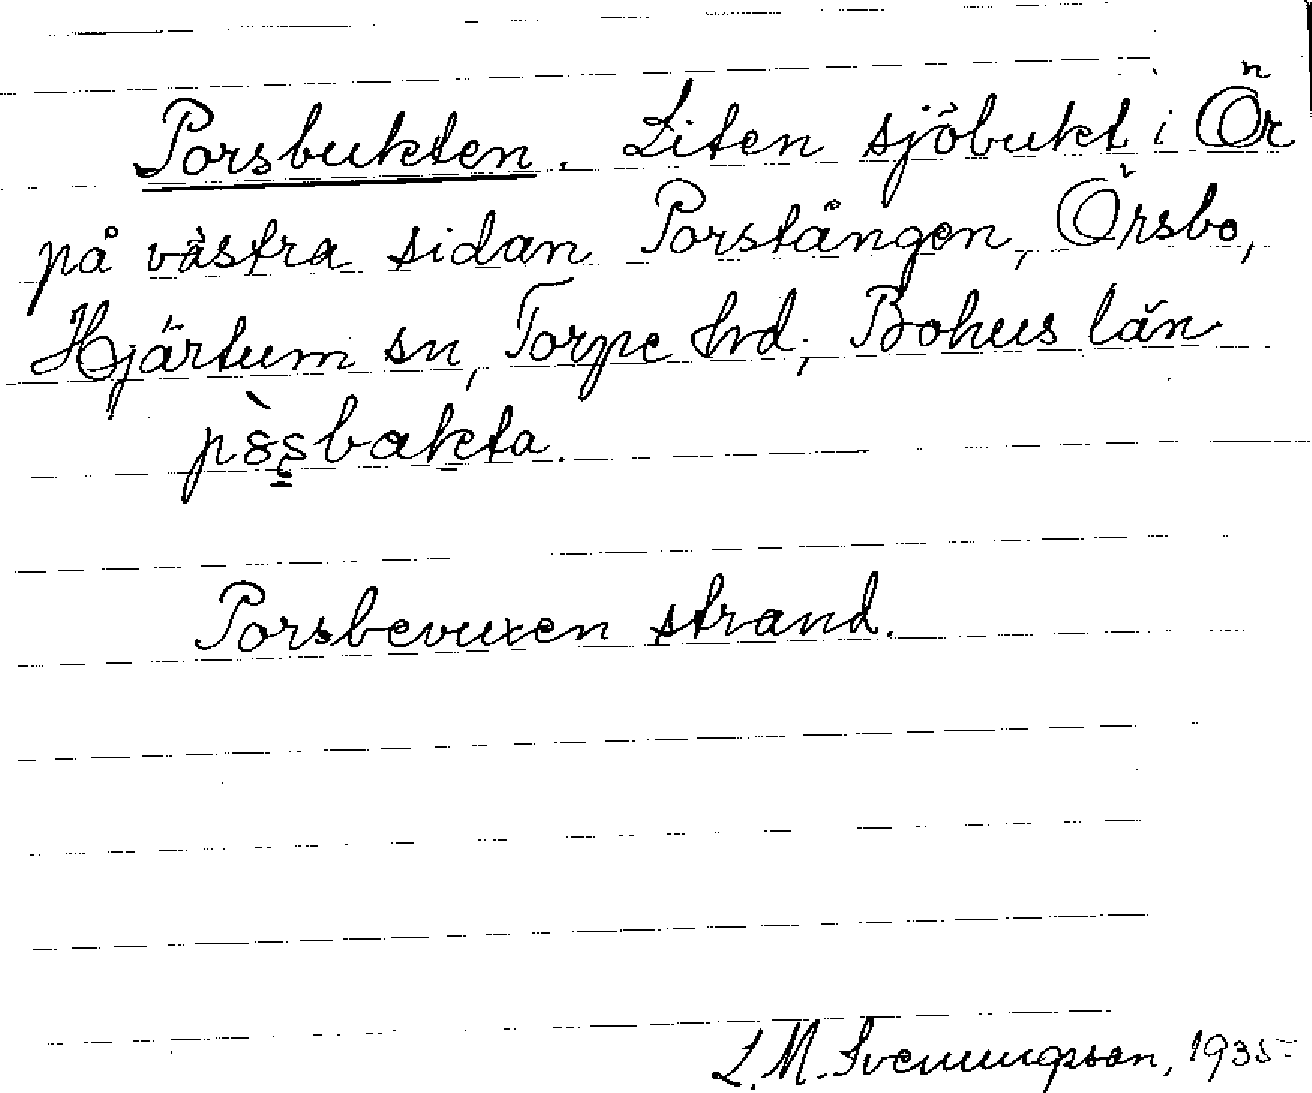 Porsbukten. Liten sjöbukt i Ör
på västra sidan Porstången, Örsbo,
Hjärtum sn, Torpe hrd, Bohus län
pèsbakta.
Porsbevuxen strand.
L. M. Svenungsson, 1935